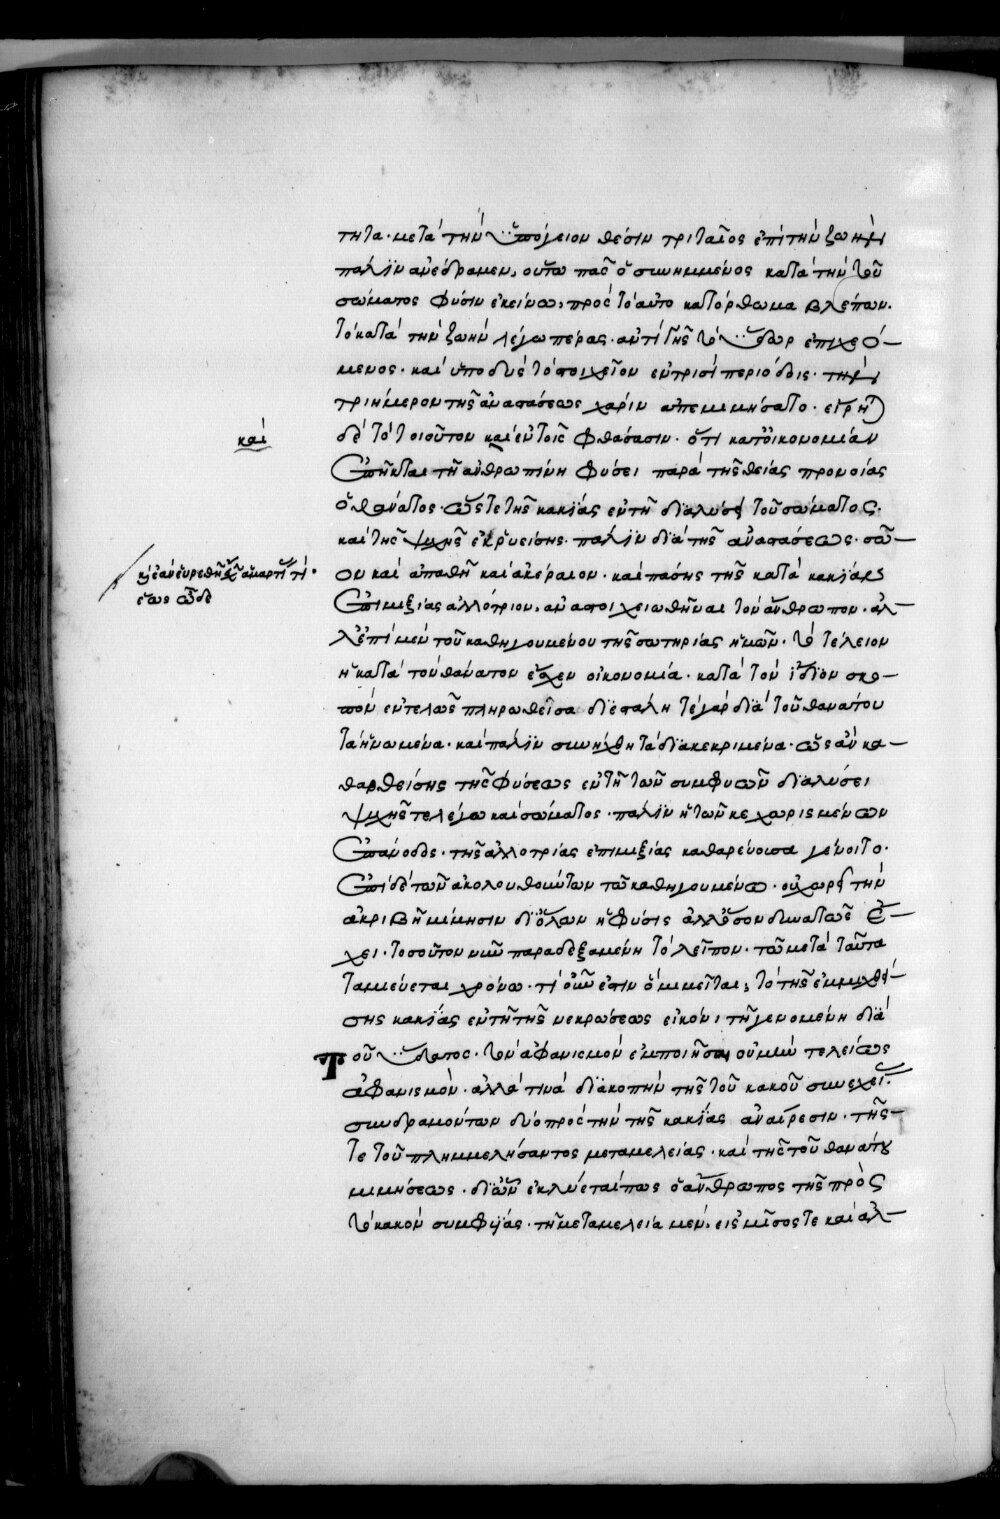 τητα· μετὰ τὴν ὑπόγειον θέσιν τριταῖος ἐπὶ τὴν ζωὴν
πάλιν ἀνέδραμεν, οὕτω πᾶς ὁ συνημμένος κατὰ τὴν τοῦ
σώματος φύσιν ἐκείνω, πρὸς τὸ αὐτὸ κατόρθωμα βλέπων.
τὸ κατὰ τὴν ζωὴν λέγω πέρας· ἀντὶ γῆς τὸ ὕδωρ ἐπιχεό-
μενος· καὶ ὑποδὺς τὸ στοιχεῖον ἐν τρισὶ περιόδοις· τὴν
τριήμερον τῆς ἀναστάσεως χάριν ἀπεμιμήσατο· εἴρηται
δὲ τὸ τοιοῦτον καὶ ἐν τοῖς φθάσασιν· ὅτι κατ' οἰκονομίαν
καὶ
ἐπῆκται τῇ ἀνθρωπίνη φύσει παρὰ τῆς θείας προνοίας
ὁ θάνατος· ὥστε τῆς κακίας ἐν τῇ διαλύσει τοῦ σώματος
καὶ τῆς ψυχῆς ἐκρυείσης· πάλιν διὰ τῆς ἀναστάσεως· σῶ-
ον καὶ ἀπαθῆ καὶ ἀκέραιον· καὶ πάσης τῆς κατὰ κακίαν
ἕως ὧδε
ἐπιμιξίας ἀλλότριον, ἀναστοιχειωθῆναι τὸν ἄνθρωπον· ἀλ-
λ' ἐπὶ μὲν τοῦ καθηγουμένου τῆς σωτηρίας ἡμῶν· τὸ τέλειον
ἡ κατὰ τὸν θάνατον ἔσχεν οἰκονομία· κατὰ τὸν ἴδιον σκο-
πὸν ἐντελῶς πληρωθεῖσα διεστάλη τε γὰρ διὰ τοῦ θανάτου
τὰ ἡνωμένα· καὶ πάλιν συνήχθη τὰ διακεκριμένα· ὡς ἂν κα-
θαρθείσης τῆς φύσεως ἐν τῇ τῶν συμφυῶν διαλύσει
ψυχῆς τε λέγω καὶ σώματος· πάλιν ἡ τῶν κεχωρισμένων
ἐπάνοδος· τῆς ἀλλοτρίας ἐπιμιξίας καθαρεύουσα γένοιτο·
ἐπὶ δὲ τῶν ἀκολουθούντων τῶ καθηγουμένω· οὐ χωρεῖ τὴν
ἀκριβῆ μίμησιν δι' ὅλων ἡ φύσις ἀλλ' ὅσον δυνατῶς ἔ-
χει· τοσοῦτον νῦν παραδεξαμένη τὸ λεῖπον· τῶ μετὰ ταῦτα
ταμιεύεται χρόνω· τί οὖν ἐστιν ὃ μιμεῖται; τὸ τῆς ἐμμιχθεί-
σης κακίας ἐν τῇ τῆς νεκρώσεως εἰκόνι τῇ γενομένη διὰ
τοῦ ὕδατος· τὸν ἀφανισμὸν ἐμποιῆσαι οὐ μὴν τελείως
ἀφανισμὸν· ἀλλά τινα διακοπὴν τῆς τοῦ κακοῦ συνεχεί.
συνδραμόντων δύο πρὸς τὴν τῆς κακίας ἀναίρεσιν· τῆς
τε τοῦ πλημμελήσαντος μεταμελείας· καὶ τῆς τοῦ θανάτου
μιμήσεως· δι' ὧν ἐκλύεταί πως ὁ ἄνθρωπος τῆς πρὸς
τὸ κακὸν συμφυΐας· τῇ μεταμελεία μὲν, εἰς μῖσός τε καὶ ἀλ-